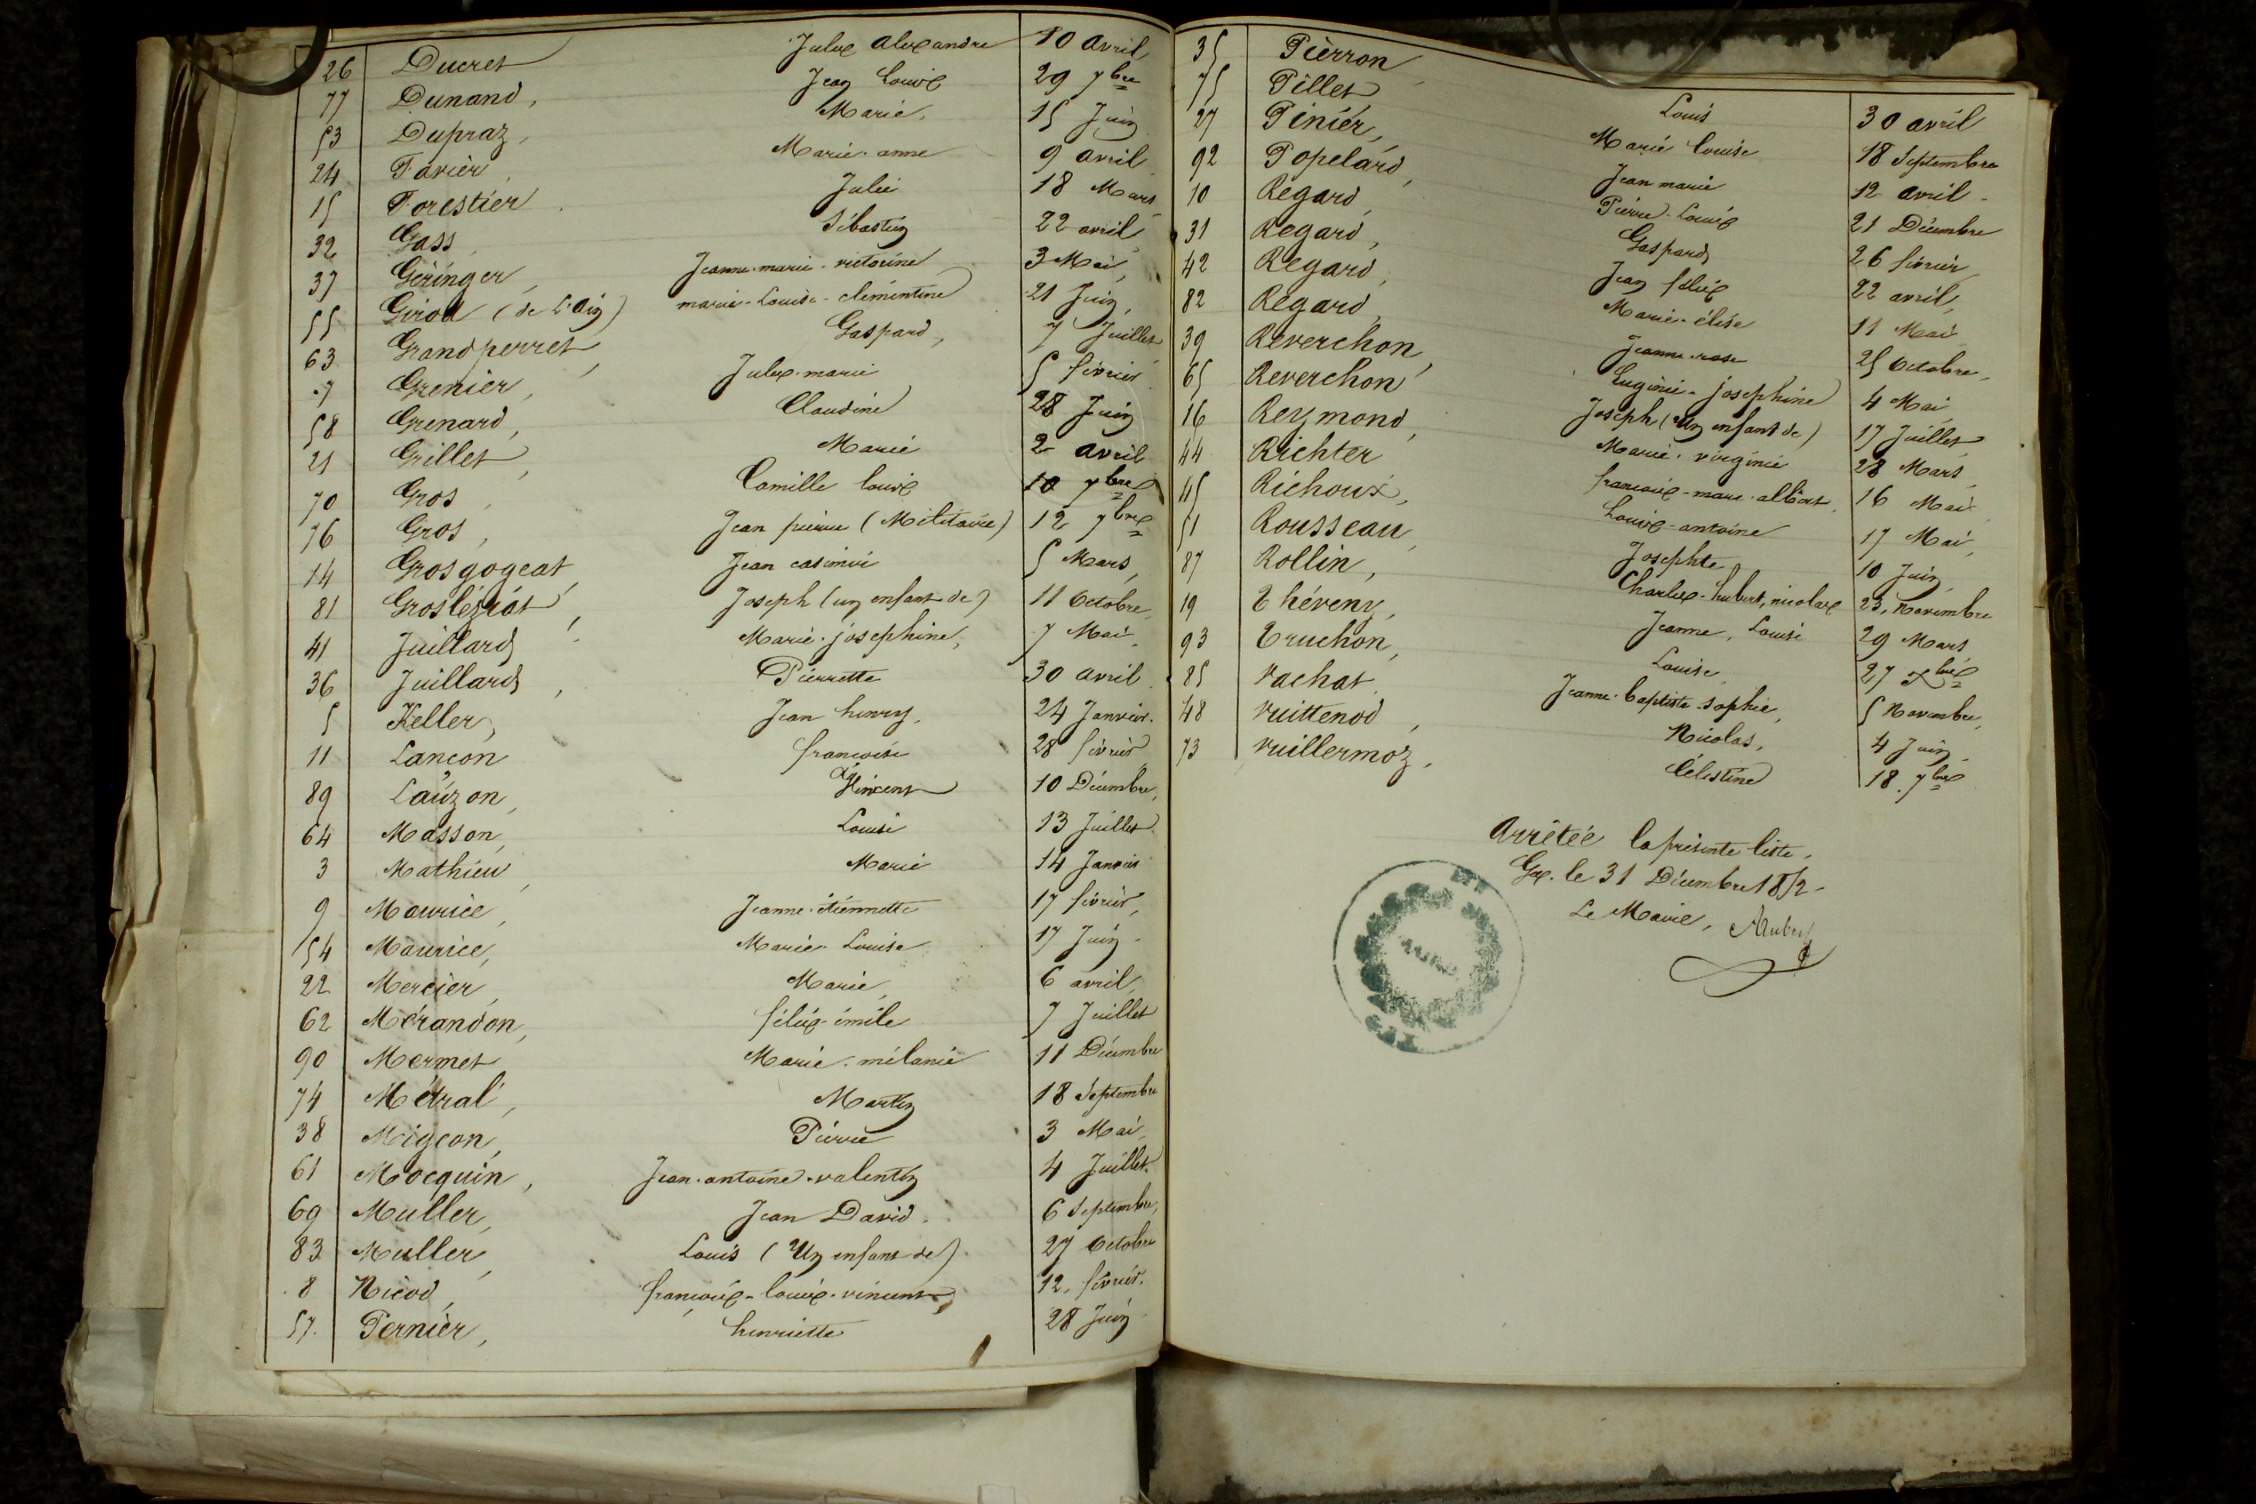 26 Ducret Jules alexandre 10 avril
77 Dunand, Jean Louis 29 7bre
53 Dupraz, Marie, 15 Juin
24 Favier, Marie-anne 9 avril
15 Forestier Julie 18 Mars
32 Gass Sébastien 22 avril
37 Géringer, Jeanne-marie-victorine 3 Mai,
55 Girod (de L'Ain) marie-Louise-clémentine 21 Juin,
63 Grandperret, Gaspard, 7 Juillet
7 Grenier, Jules-marie 5 février
58 Grenard, Claudine 28 Juin
21 Grillet, Marie 2 avril
70 Gros, Camille Louis 10 7bre
76 Gros, Jean pierre (Militaire) 12 7bre
14 Grosgogeat, Jean casimir 5 Mars,
81 Groslézrat, Joseph (un enfant de) 11 Octobre,
41 Juillard Marie-josephine, 7 Mai,
36 Juillard, Pierrette 30 avril
5 Keller, Jean henry, 24 Janvier.
11 Lançon françoise 28 février
89 Lauzon, Vincent 10 Décembre,
64 Masson, Louise 13 Juillet
3 Mathieu, Marie 14 Janvier
9 Maurice, Jeanne-étiennette 17 février,
54 Maurice, Marie-Louise 17 Juin
22 Mercier, Marie, 6 avril,
62 Mérandon, félix-émile 7 Juillet
90 Mermet Marie-mélanie 11 Décembre
74 Métral, Martin 18 Septembre
38 Migeon, Pierre 3 Mai,
61 Mocquin, Jean-antoine-valentin 4 Juillet.
69 Muller, Jean David. 6 Septembre,
83 Muller, Louis (Un enfant de) 27 Octobre
8 Nicod, françois-louis-vincent 12, février.
57. Pernier, henriette 28 Juin
35 Pierron Louis 30 avril
75 Pillet Marie Louise 18 Septembre
27 Pinier, Jean marie 12 avril
92 Popelard, Pierre-Louis 21 Décembre
10 Regard, Gaspard 26 février
31 Regard, Jean félix 22 avril,
42 Regard, Marie-élise 11 Mai
82 Regard, Jeanne-rose 25 Octobre,
39 Reverchon, Eugénie-josephine 4 Mai
65 Reverchon Joseph (Un enfant de) 17 Juillet,
16 Reymond, Marie-virginie 28 Mars,
44 Richter françois-marie-albert, 16 Mai
45 Richoux, Louis-antoine 17 Mai,
51 Rousseau, Josephte 10 Juin,
87 Rollin, Charles-hubert, nicolas 23, Novembre
19 Théveny, Jeanne, Louise 29 Mars
93 Truchon, Louise, 27 Xbre
85 Vachat, Jeanne-baptiste-sophie, 5 Novembre,
48 Vuittenod, Nicolas, 4 Juin
73 Vuillermoz, Célestine 18. 7bre
Arrêtée la présente liste,
Gex. le 31 Décembre 1852-
Le Maire,